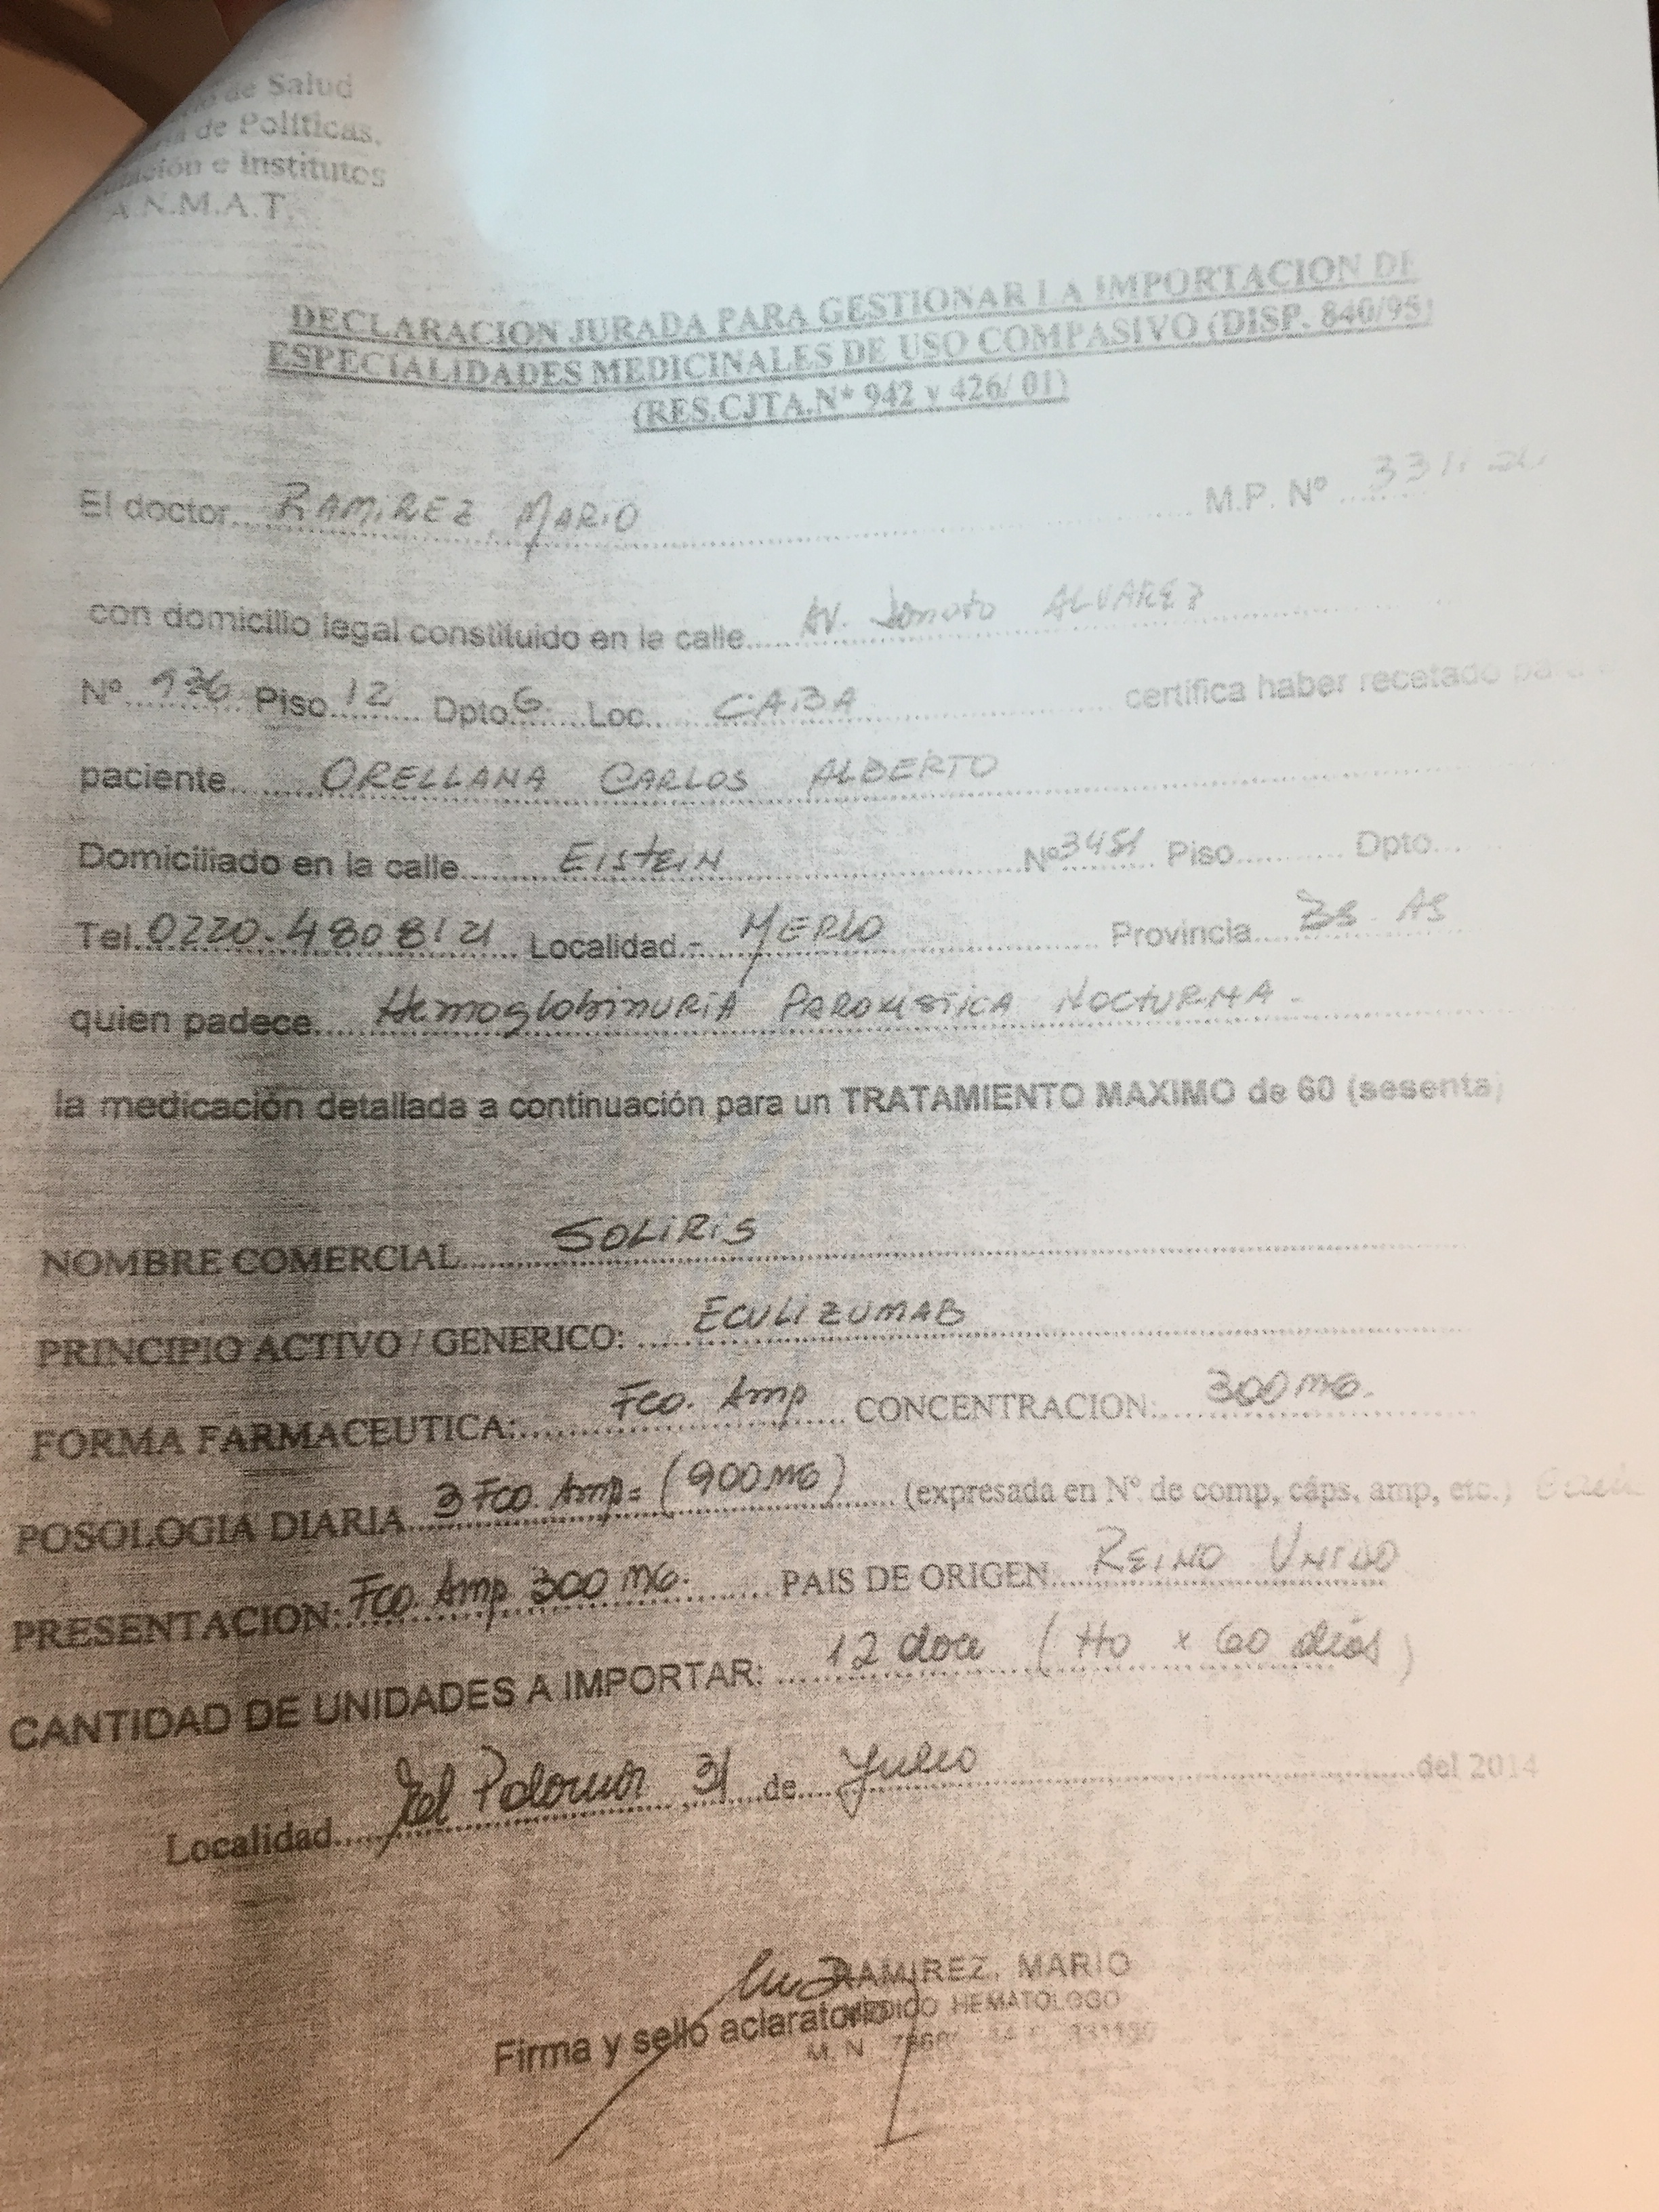 de Salud
de Políticas,
e Institutos
A.N.M.A.T.
DECLARACION JURADA PARA GESTIONAR LA IMPORTACION DE
ESPECIALIDADES MEDICINALES DE USO COMPASIVO (DISP. 840/95)
(RES.CJTA.N* 942 y 426/ 01)
El doctor RAMIREZ, MARIO M.P. Nº
con domicilio legal constituido en la calle AV. Donato ALVAREZ
Nº 136 Piso 12 Dpto G Loc. CABA certifica haber recetado para
paciente ORELLANA CARLOS ALBERTO
Domiciliado en la calle EIStEIN Nº 3451 Piso Dpto
Tel. 0220-4808121 Localidad.- MERLO Provincia Bs As
quien padece HemoglobinuRIA PAROXISTICA NOCTURNA.
la medicación detallada a continuación para un TRATAMIENTO MAXIMO de 60 (sesenta)
NOMBRE COMERCIAL SOLIRIS
PRINCIPIO ACTIVO / GENERICO: ECULIZUMAB
FORMA FARMACEUTICA: Fco. Amp CONCENTRACION: 300 MG.
POSOLOGIA DIARIA 3 Fco. Amp= (900 MG) (expresada en Nº de comp, cáps. amp, etc.)
PRESENTACION: Fco. Amp 300 MG. PAIS DE ORIGEN REINO UNIDO
CANTIDAD DE UNIDADES A IMPORTAR: 12 doce (tto x 60 días)
Localidad El Palomar 31 de Julio del 2014
RAMIREZ, MARIO
MEDICO HEMATOLOGO
Firma y sello aclaratorio
M. N.